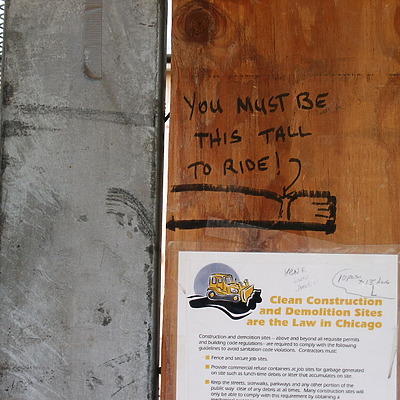 YOU MUST BE
THIS TALL
TO RIDE!
Clean Construction
and Demolition Sites
are the Law in Chicago
Construction and demolition sites – above and beyond all requisite permits
and building code regulations– are required to comply with the following
guidelines to avoid sanitation code violations. Contractors must:
Fence and secure job sites.
Provide commercial refuse containers at job sites for garbage generated
on site such as lunch-time debris or litter that accumulates on site.
Keep the streets, sidewalks, parkways and any other portion of the
public way clear of any debris at all times. Many construction sites will
only be able to comply with this requirement by obtaining a